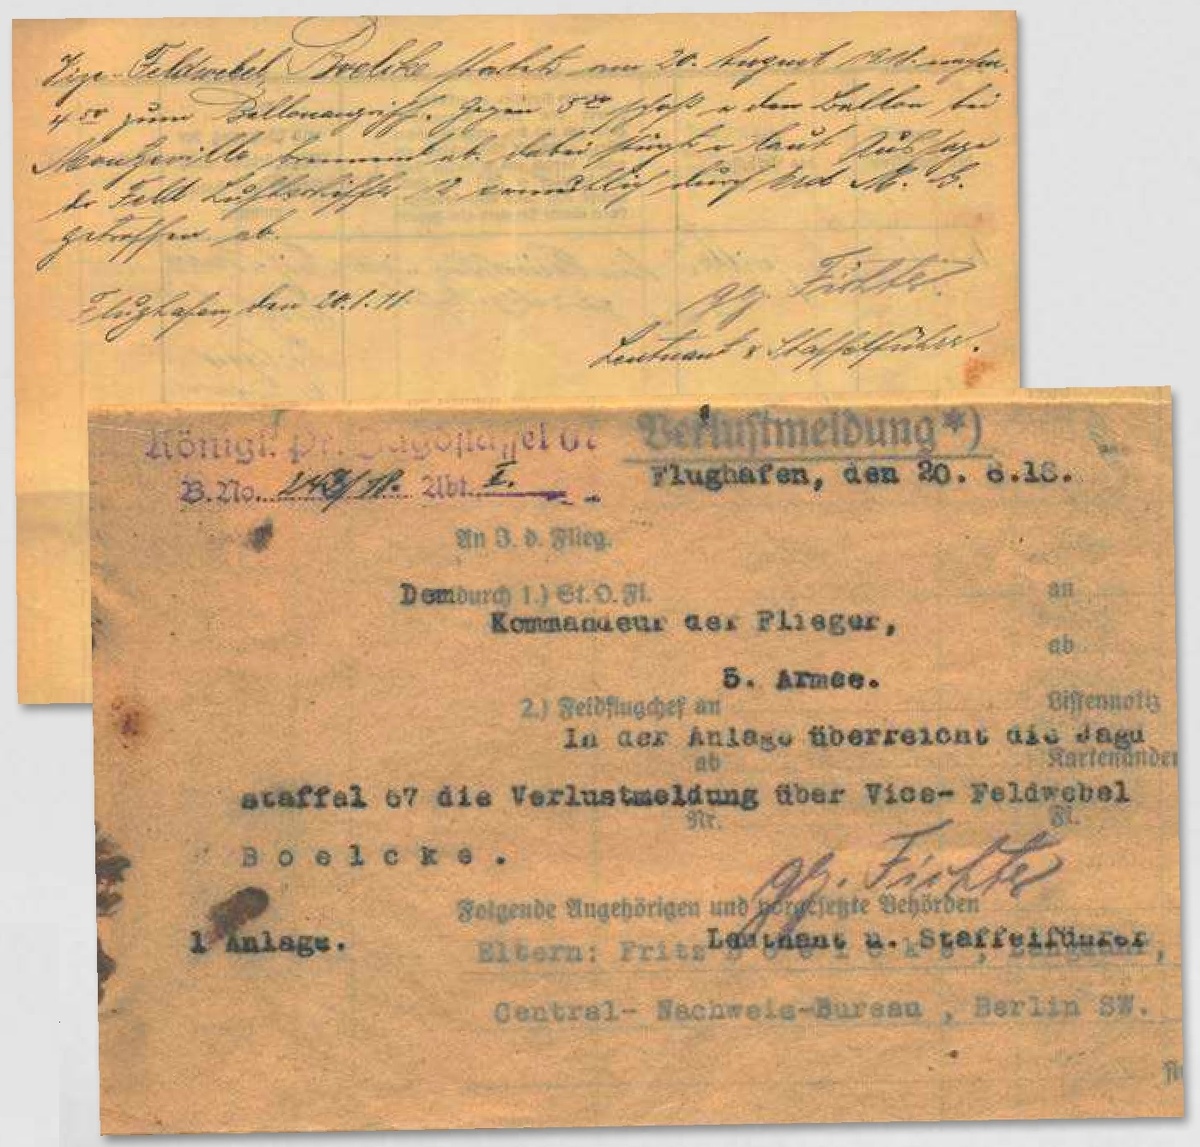 Vize-Feldwebel Boelcke startete am 20. August 1918 nachm.
4 50 zum Ballonangriff. Gegen 5 00 schoß er den Ballon bei
Montzeville brennend ab. dabei stürzte er laut Aussage
der Feld Luftschiffer 12 vermutlich durch Erd M. G.
getroffen ab.
Flughafen, den 20.
gez. Fichter.
Leutnant & Staffelführer.
Königl. Pr. Jagdstaffel 67
Verlustmeldung*)
B. No. /18. Abt. I.
Flughafen, den 20. 8.18.
An I. d. Flieg.
Dem durch 1.) St. O. Fl. an
Kommandeur der Flieger,
ab
5. Armee.
2.) Feldflugchef an Listennotiz
In der Anlage überreicht die Jagd
ab Kartenänder
staffel 67 die Verlustmeldung über Vice- Feldwebel
Nr. Fl.
Boelcke.
gez. Fichter
Folgende Angehörigen und vorgesetzte Behörden
1 Anlage.
Leutnant u. Staffelführer
Eltern: Fritz Boelcke, Langfuhr,
Central- Nachweis-Bureau , Berlin SW.